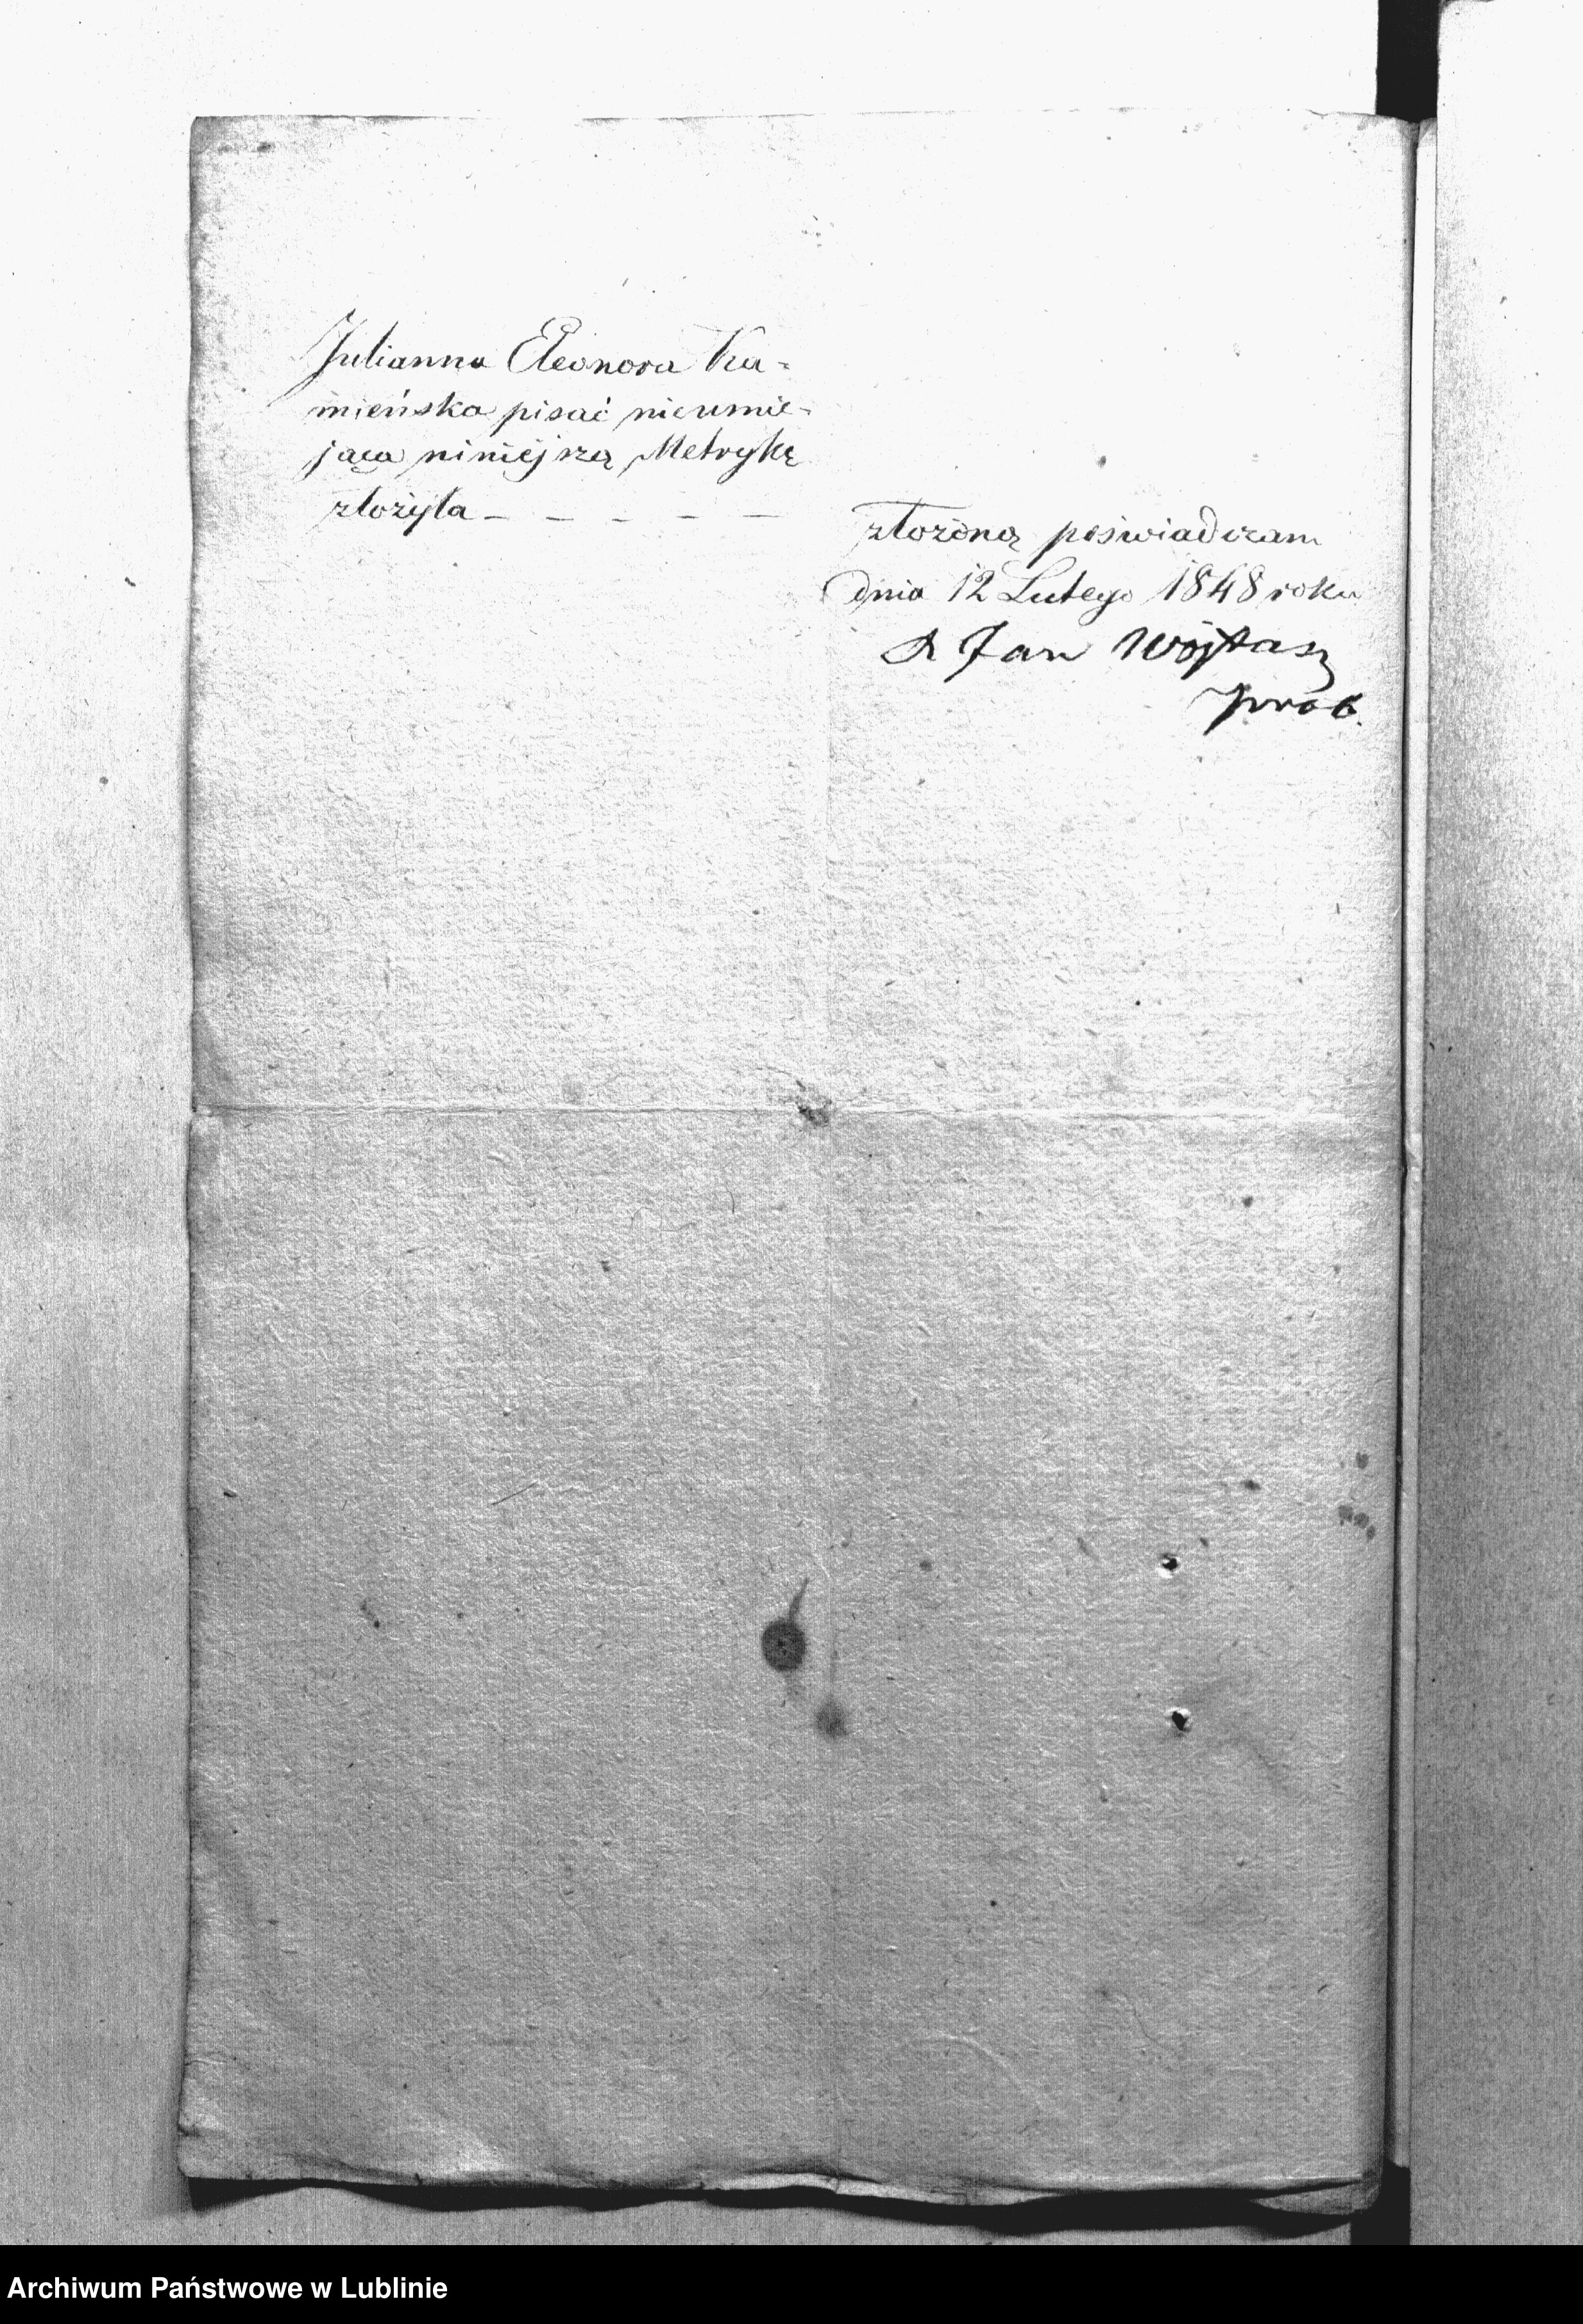 Julianna Eleonora Ka-
mieńska pisać nieumie-
jąca niniéjszą Metrykę
złożyła - - - - -
złożoną poświadczam
dnia 12 Lutego 1848 roku
X Jan Wójtasz
prob.
Archiwum Państwowe w Lublinie